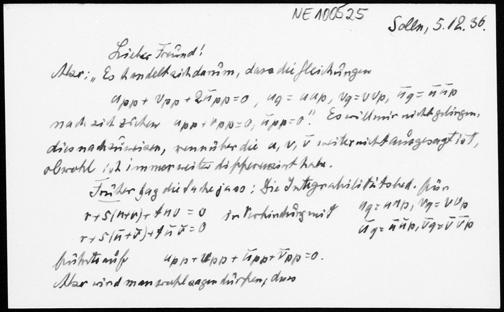 NE100525
Solln, 5.12.36.
Lieber Freund!
Also: „Es handelt sich darum, dass die Gleichungen
u_pp + v_pp + 2ū_pp = 0, u_q = u u_p, v_q = v v_p, ū_q = ū ū_p
nach sich ziehen u_pp + v_pp = 0, ū_pp = 0." Es will mir nicht gelingen,
dies nachzuweisen, wenn über die u, v, ū weiter nicht ausgesagt ist,
obwohl ich immer weiter differenziert habe.
Früher lag die Sache so: Die Integrabilitätsbed. für
r + s(u+v) + t u v = 0 in Verbindung mit u_q = u u_p, v_q = v v_p
r + s(ū+v̄) + t ū v̄ = 0 ū_q = ū ū_p, v̄_q = v̄ v̄_p
führt auf u_pp + v_pp + ū_pp + v̄_pp = 0.
Aber wird man wohl sagen dürfen, dass